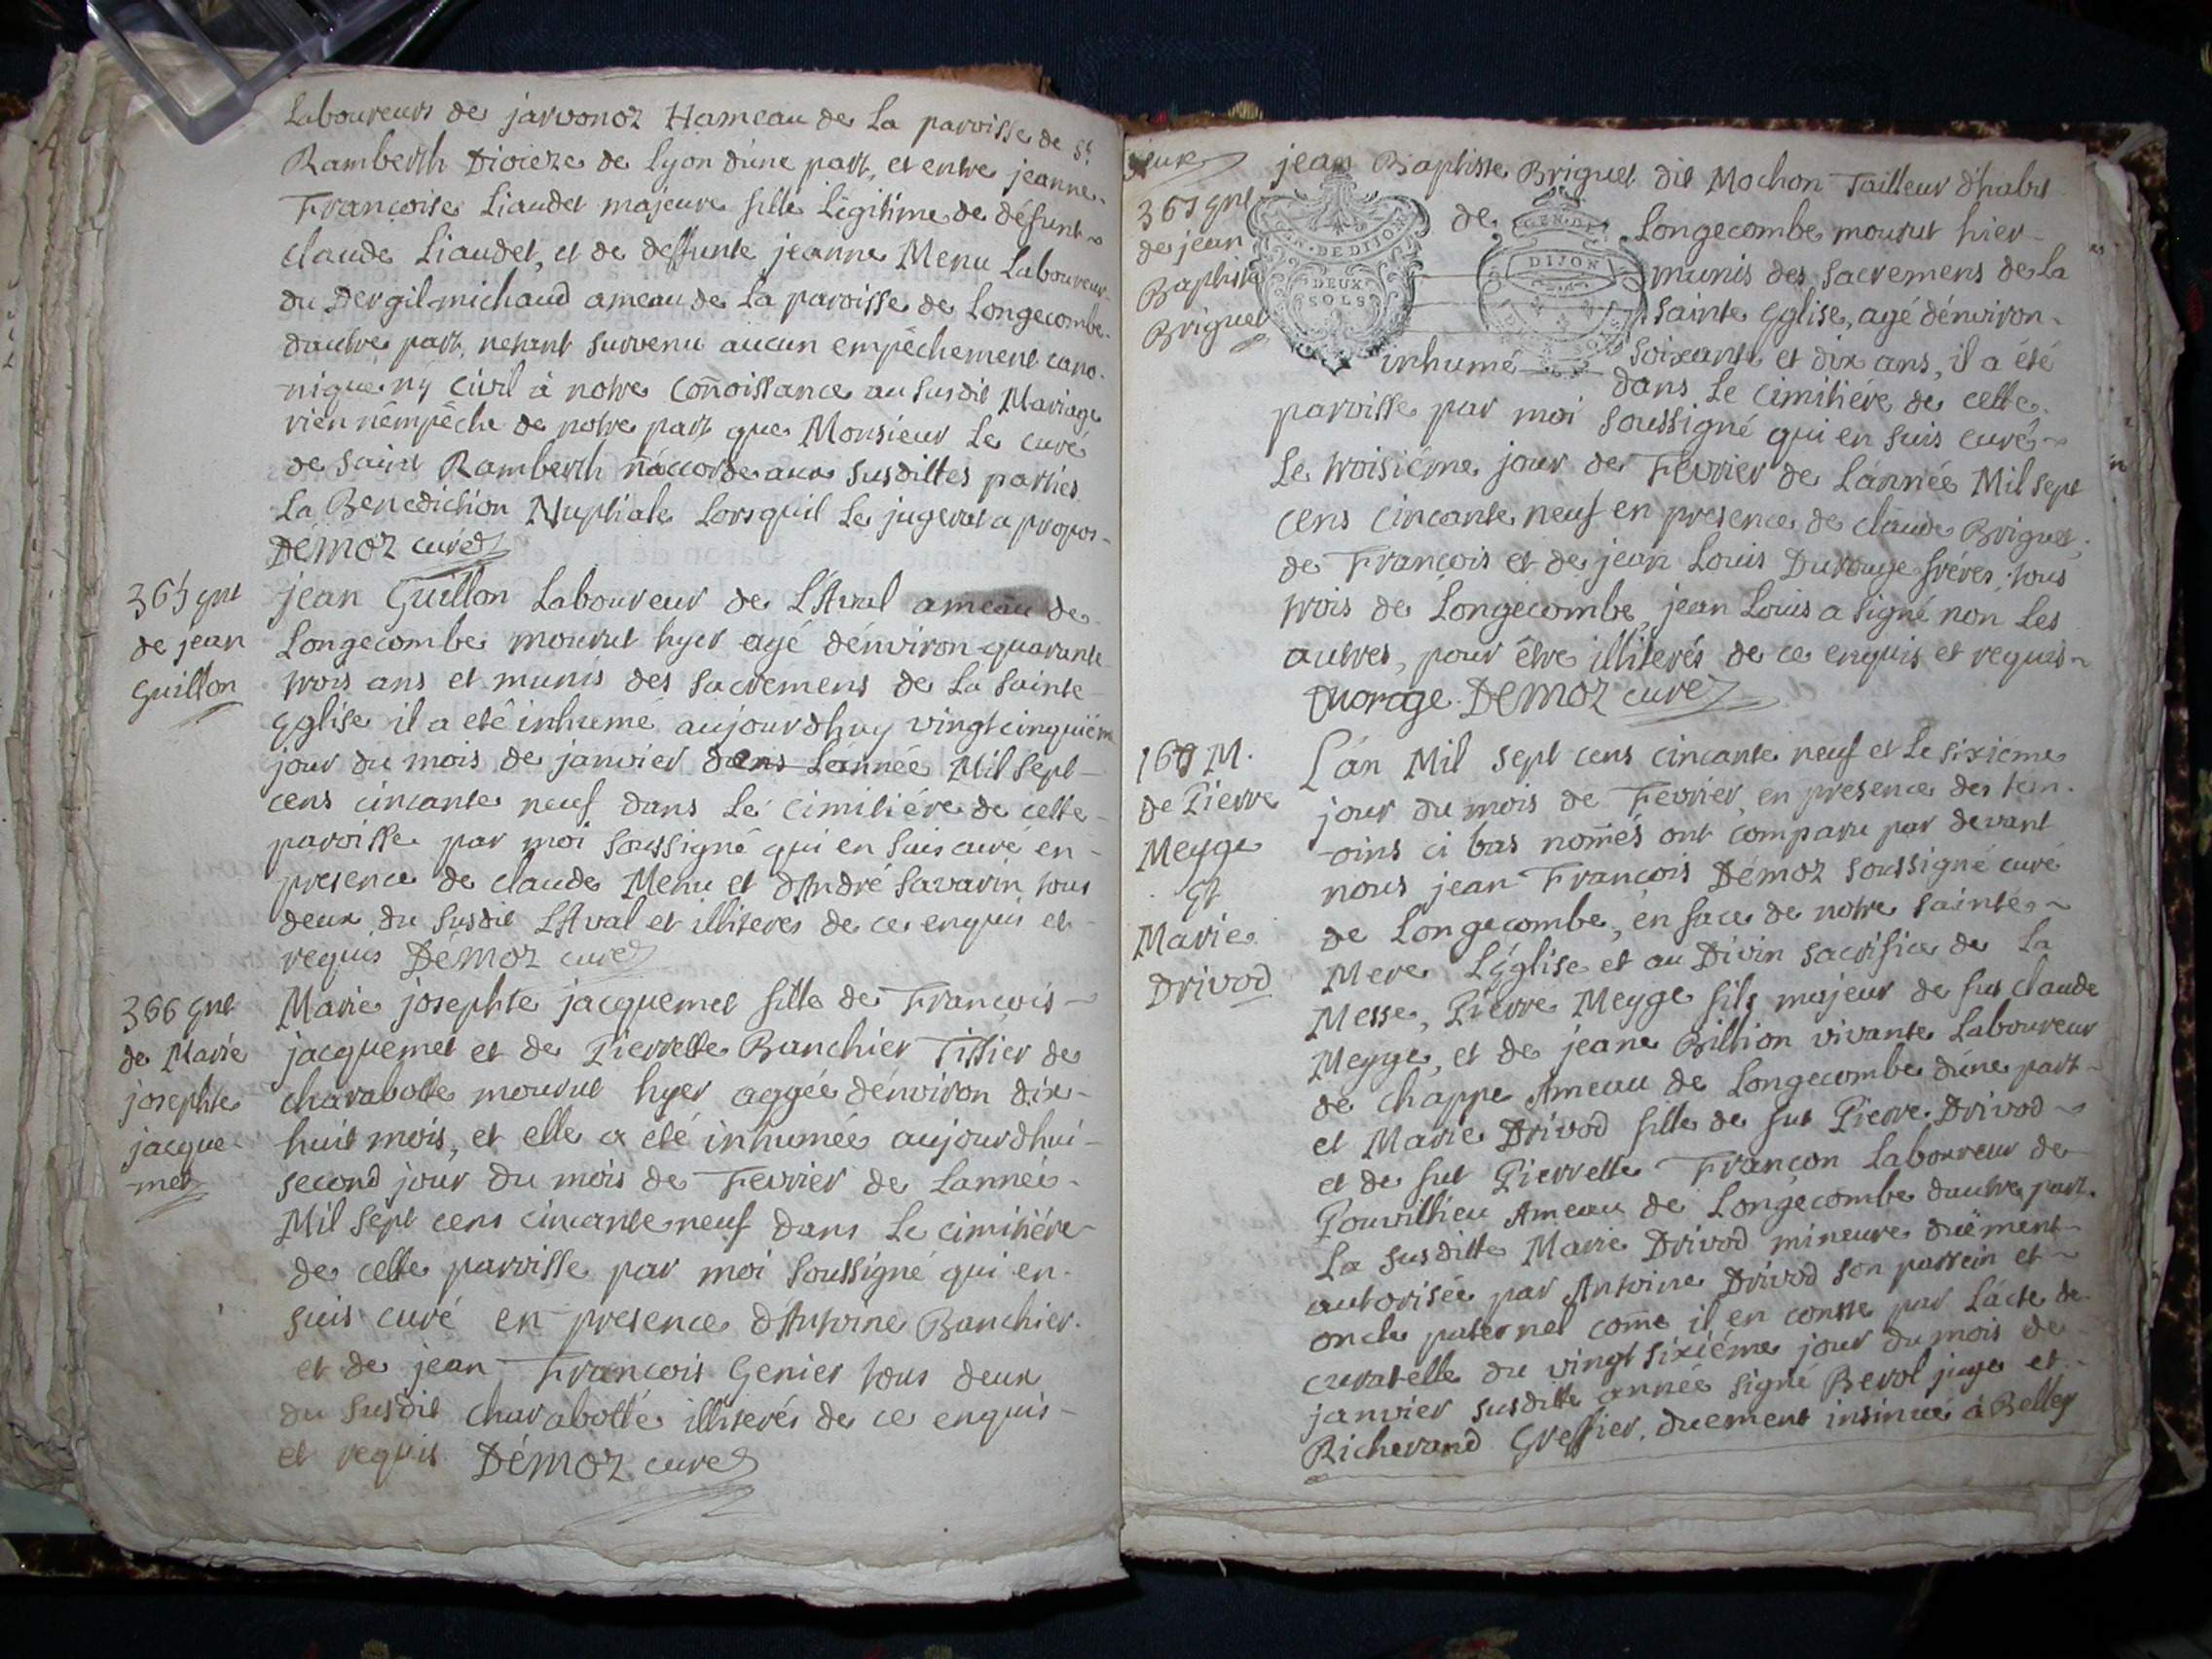 Laboureurs de jarvonoz Hameau de La paroisse de St
Ramberth Dioieze de lyon d'une part, et entre jeanne
Francoise Liaudet majeure fille Légitime de défunt
claude Liaudet, et de deffunte jeanne Menu Laboureur
du Dergil-michaud ameau de La paroisse de Longecombe
dautre part, netant survenu aucun empêchement cano-
nique ny civil à notre connoissance au susdit Mariage
rien n'empêche de notre part que Monsieur Le curé
de saint Ramberth n'accorde aux susdittes parties
La Benediction Nuptiale Lorsquil Le jugerat a propos
DÉMOZ curé
365 gnt
de jean
Guillon
jean Guillon Laboureur de L'Aval ameau de
Longecombe mourut hyer agé d'environ quarante
trois ans et munis des sacremens de La Sainte
Eglise il a eté inhumé aujourdhuy vingtcinquiém
jour du mois de janvier dans Lannée Mil sept
cens cincante neuf dans Le cimitiére de cette
paroisse par moi soussigné qui en suis curé en
presence de claude Menu et dAndré Savarin tous
deux du susdit L'Aval et illiteres de ce enquis et
requis DÉMOZ curé
366 gnt
de Marie
josephte
jacque
-met
Marie josephte jacquemet fille de Francois
jacquemet et de Pierrette Banchier Tissier de
charabotte mourut hyer aggée d'environ dix-
huit mois, et elle a eté inhumée aujourdhui
second jour du mois de Fevrier de Lannée
Mil sept cens cincante neuf dans Le cimitiére
de cette paroisse par moi soussigné qui en
suis curé en presence dAntoine Banchier
et de jean Francois Genier tous deux
du susdit charabotte illiterés de ce enquis
et requis DÉMOZ curé
367 gnt
de jean
Baptiste
Briguet
jean Baptiste Briguet dit Mochon Tailleur d'habit
GEN. DE DIJON
DEUX
SOLS
GEN. DE
DIJON
de Longecombe mourut hier
munis des sacremens de La
sainte Eglise, agé d'environ
soixante et dix ans, il a été
inhumé dans Le cimitiére de cette
paroisse par moi soussigné qui en suis curé
Le troisiéme jour de Fevrier de L'année Mil sept
cens cincante neuf en presence de claude Briguet,
de Francois et de jean Louis Durouge fréres tous
trois de Longecombe, jean Louis a signé non Les
autres, pour être illiterés de ce enquis et requis
DEMOZ curé
M.
de Pierre
Meyge
Et
Marie
Drivod
L'an Mil sept cens cincante neuf et Le sixiéme
jour du mois de Fevrier, en presence des tem-
-oins ci bas només ont comparu par devant
nous jean Francois Démoz soussigné curé
de Longecombe, en face de notre Sainte
Mere L'église et au Divin sacrifice de La
Messe, Pierre Meyge fils majeur de fut claude
Meyge, et de jeane Billion vivante Laboureur
de chappe Ameau de Longecombe d'une part
et Marie Drivod fille de fut Pierre Drivod
et de fut Pierrette Françon Laboureur de
Pouvillieu Ameau de Longecombe dautre part.
La susditte Marie Drivod mineure duëment
autorisée par Antoine Drivod son parrein et
oncle paternel come il en conste par L'acte de
curatelle du vingt sixiéme jour du mois de
janvier susditte année signé Berol juge et
Richerand Greffier, duement insinué à Belley